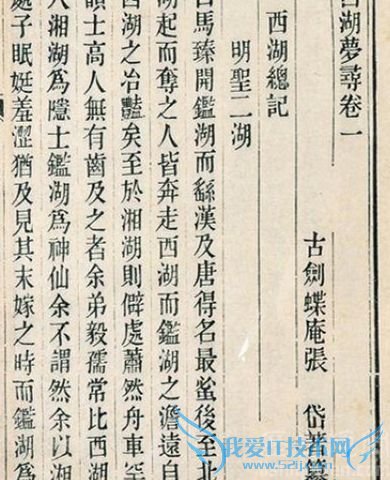 西湖夢尋卷一
古劍蝶庵張 岱
西湖總記
明聖二湖
自馬臻開鑑湖而繇漢及唐得名最蚤後至北
湖起而奪之人皆奔走西湖而鑑湖之澹遠自
西湖之冶豔矣至於湘湖則僻處蕭然舟車罕
韻士高人無有齒及之者余弟毅孺常比西湖
人湘湖為隱士鑑湖為神仙余不謂然余以湘
處子眠娗羞澀猶及見其末嫁之時而鑑湖為
我爱IT技术网